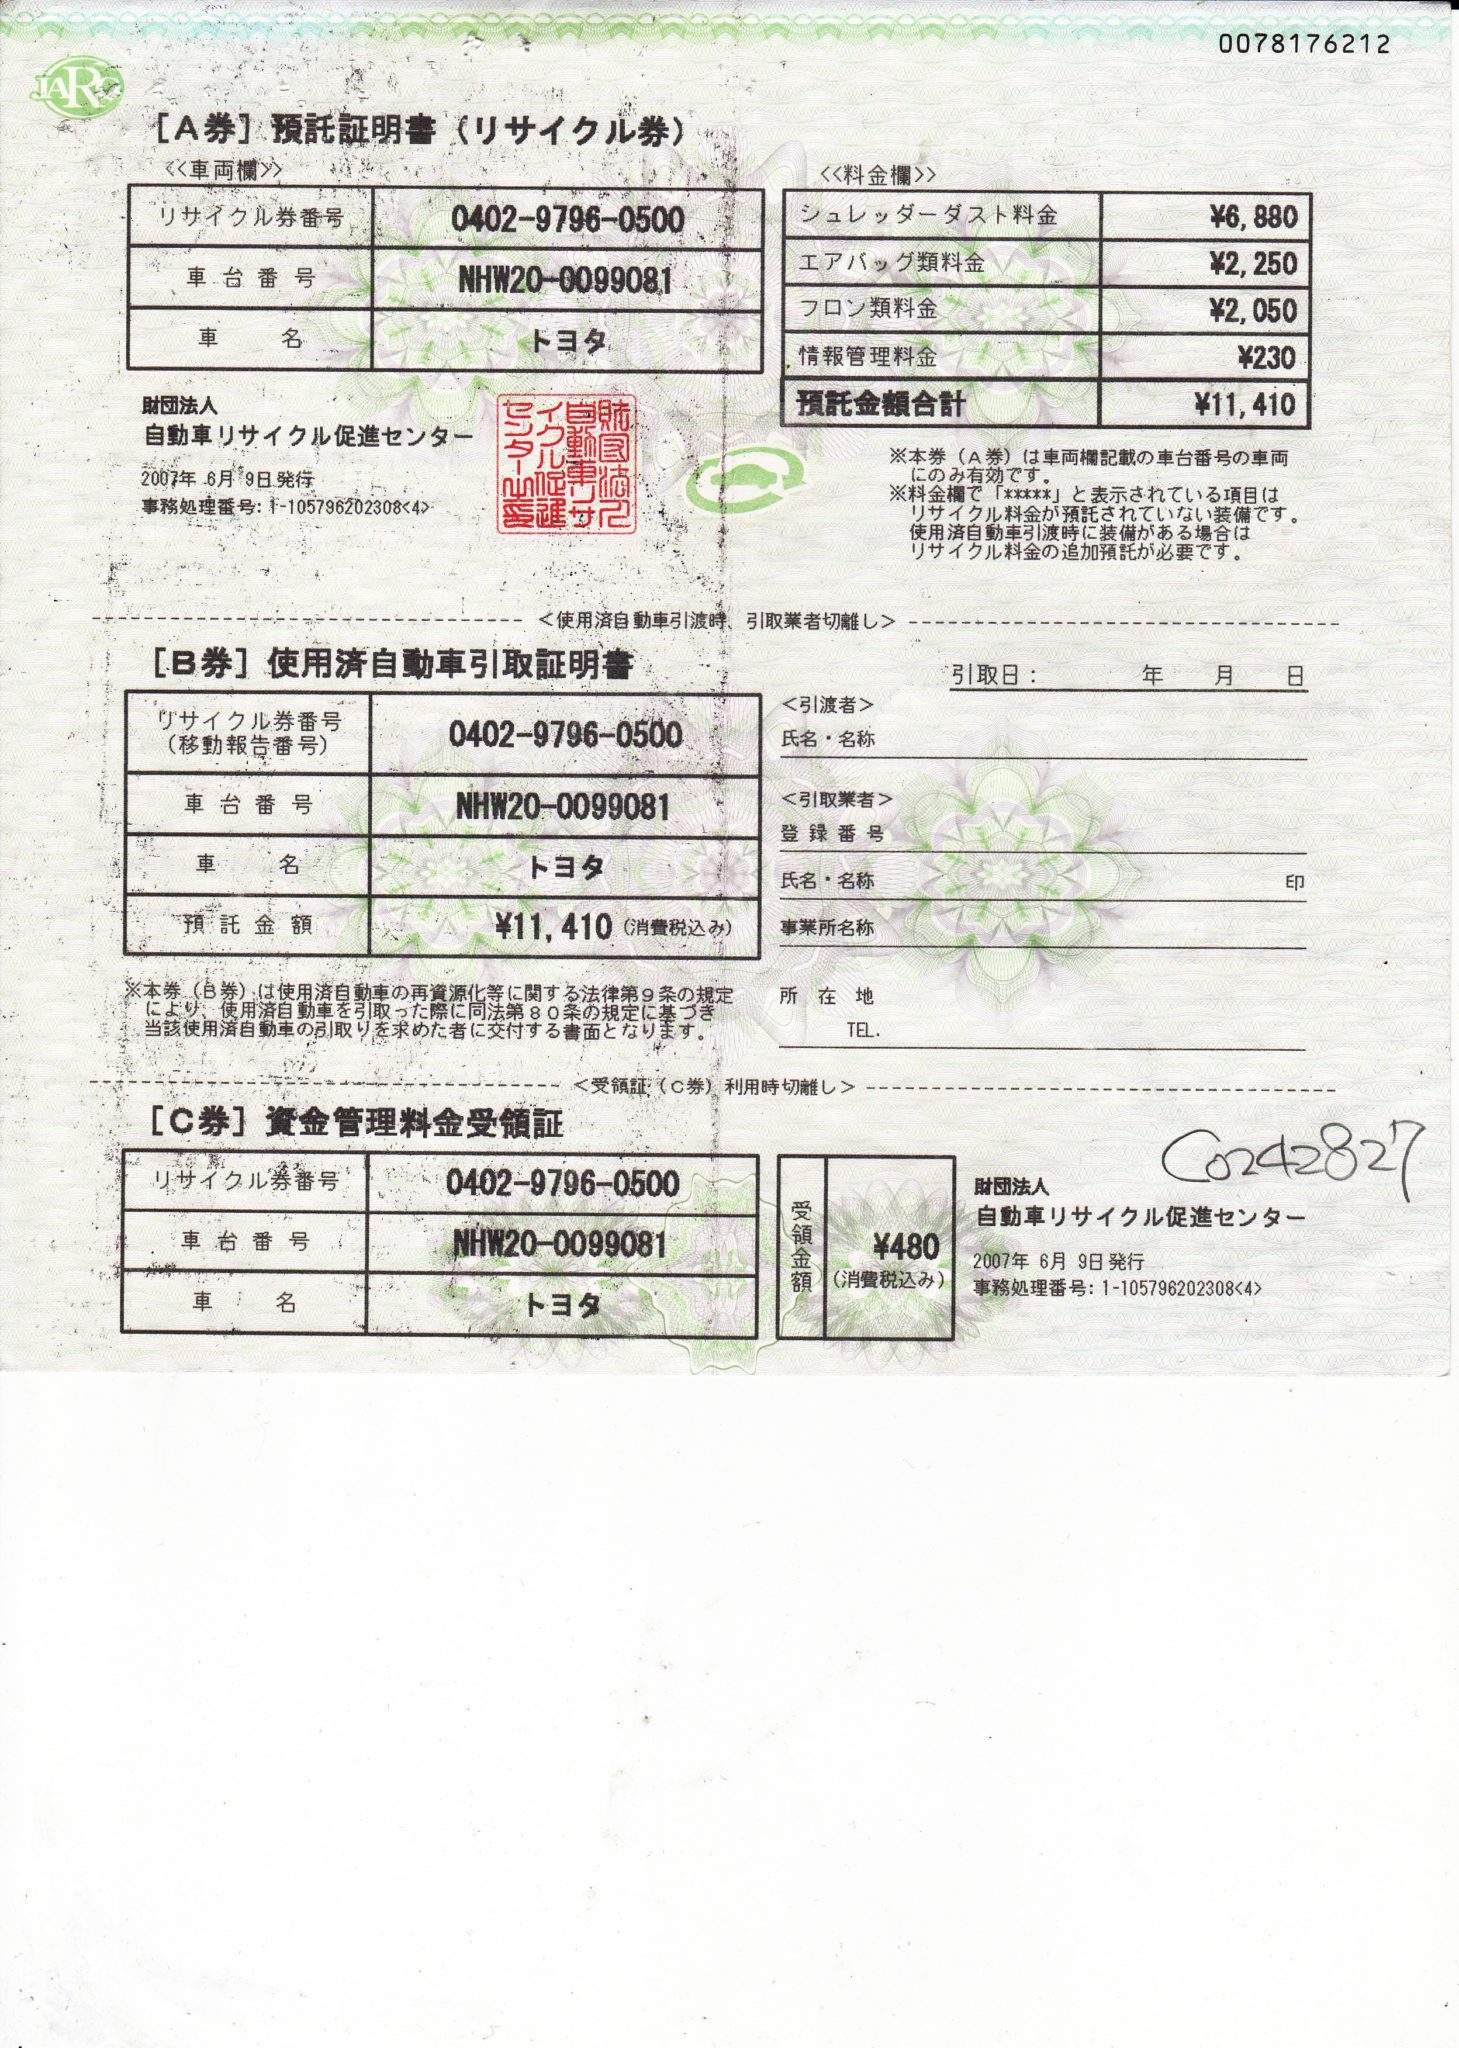 0078176212
JARC
［Ａ券］預託証明書（リサイクル券）
<<車両欄>>
リサイクル券番号 0402-9796-0500
車台番号 NHW20-0099081
車名 トヨタ
<<料金欄>>
シュレッダーダスト料金 ¥6,880
エアバッグ類料金 ¥2,250
フロン類料金 ¥2,050
情報管理料金 ¥230
預託金額合計 ¥11,410
財団法人
自動車リサイクル促進センター
2007年 6月 9日発行
事務処理番号:1-105796202308<4>
財団法人
自動車リサ
イクル促進
センター
※本券（Ａ券）は車両欄記載の車台番号の車両
にのみ有効です。
※料金欄で「*****」と表示されている項目は
リサイクル料金が預託されていない装備です。
使用済自動車引渡時に装備がある場合は
リサイクル料金の追加預託が必要です。
＜使用済自動車引渡時、引取業者切離し＞
［Ｂ券］使用済自動車引取証明書
引取日： 年 月 日
リサイクル券番号
（移動報告番号） 0402-9796-0500
車台番号 NHW20-0099081
車名 トヨタ
預託金額 ¥11,410（消費税込み）
＜引渡者＞
氏名・名称
＜引取業者＞
登録番号
氏名・名称 印
事業所名称
所在地
TEL.
※本券（Ｂ券）は使用済自動車の再資源化等に関する法律第９条の規定
により、使用済自動車を引取った際に同法第８０条の規定に基づき
当該使用済自動車の引取りを求めた者に交付する書面となります。
＜受領証（Ｃ券）利用時切離し＞
［Ｃ券］資金管理料金受領証
リサイクル券番号 0402-9796-0500
車台番号 NHW20-0099081
車名 トヨタ
受領金額 ¥480
（消費税込み）
C0242827
財団法人
自動車リサイクル促進センター
2007年 6月 9日発行
事務処理番号:1-105796202308<4>